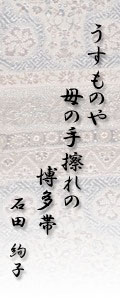 うすものや
母の手擦れの
博多帯
石田 絢子